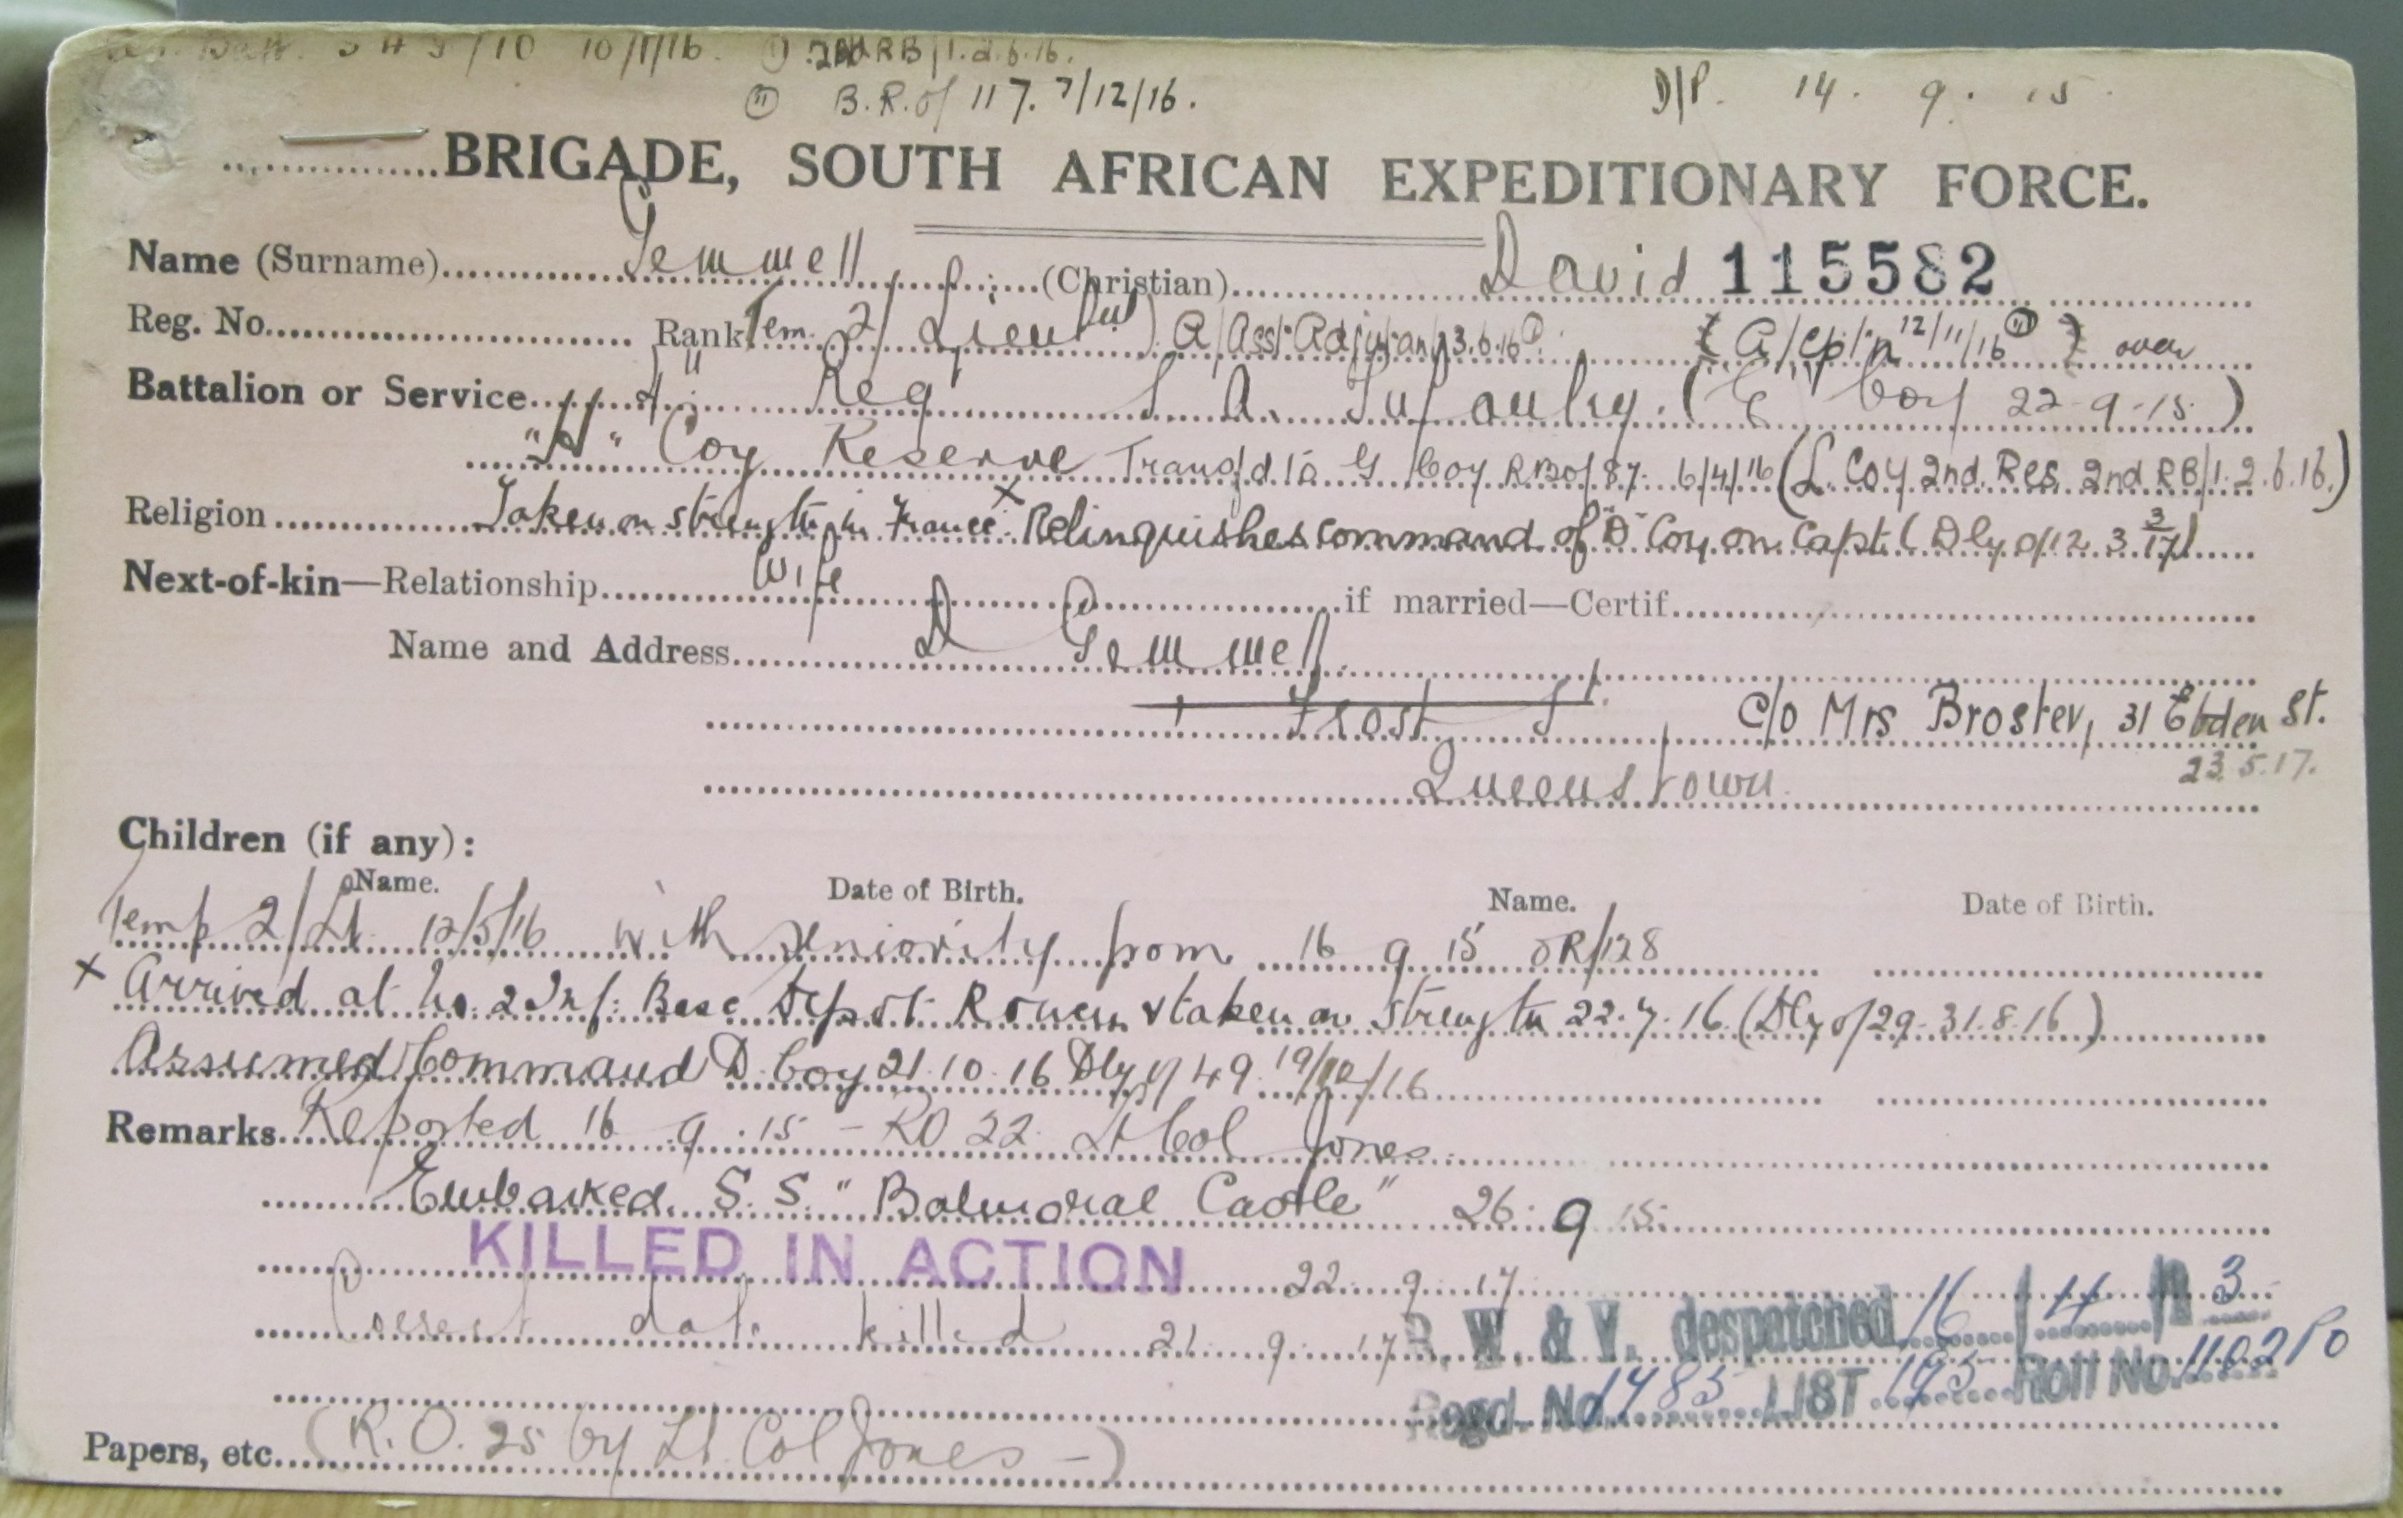 Batt. 343/10 10/1/16. ① 2nd RB/1.2.6.16.
⑪ B.R. of 117. 7/12/16. D/P. 14. 9. 15.
BRIGADE, SOUTH AFRICAN EXPEDITIONARY FORCE.
Name (Surname) Gemmell (Christian) David 115582
Reg. No. Rank Tem. 2/Lieut A/Asst Adjutant 3.6.16 ① { A/Captn 12/11/16 ⑪ } over
Battalion or Service 4th Reg S. A. Infantry. (C Coy 22-9-15)
"H" Coy Reserve Transfd to G Coy R.B of 87. 6/4/16 (L. Coy 2nd. Res. 2nd RB/1.2.6.16.)
Religion Taken on strength in France x Relinquishes command of "D" Coy on Capt. (Dly o/12. 3 3/17)
Next-of-kin—Relationship Wife if married—Certif.
Name and Address D Gemmell
Frost St. C/o Mrs Broster, 31 Ebden St.
Queenstown 23.5.17.
Children (if any):
Name. Date of Birth. Name. Date of Birth.
Temp 2/Lt 12/5/16 with seniority from 16 9 15 OR/128
x Arrived at No. 2 Inf: Base Depot Rouen & taken on strength 22.7.16 (Dly o/29. 31.8.16)
Assumed Command D. Coy 21.10.16 Dly o/49. 19/12/16
Remarks Reported 16. 9. 15 – RO 22. Lt Col Jones
Embarked. S. S. "Balmoral Castle" 26. 9 15.
KILLED IN ACTION 22. 9. 17.
Correct date killed 21. 9. 17 B. W. & V. despatched 16/4/23
Regd. No. 1485 LIST 195 Roll No. 1102 Po
Papers, etc. (R. O. 25 by Lt. Col Jones –)